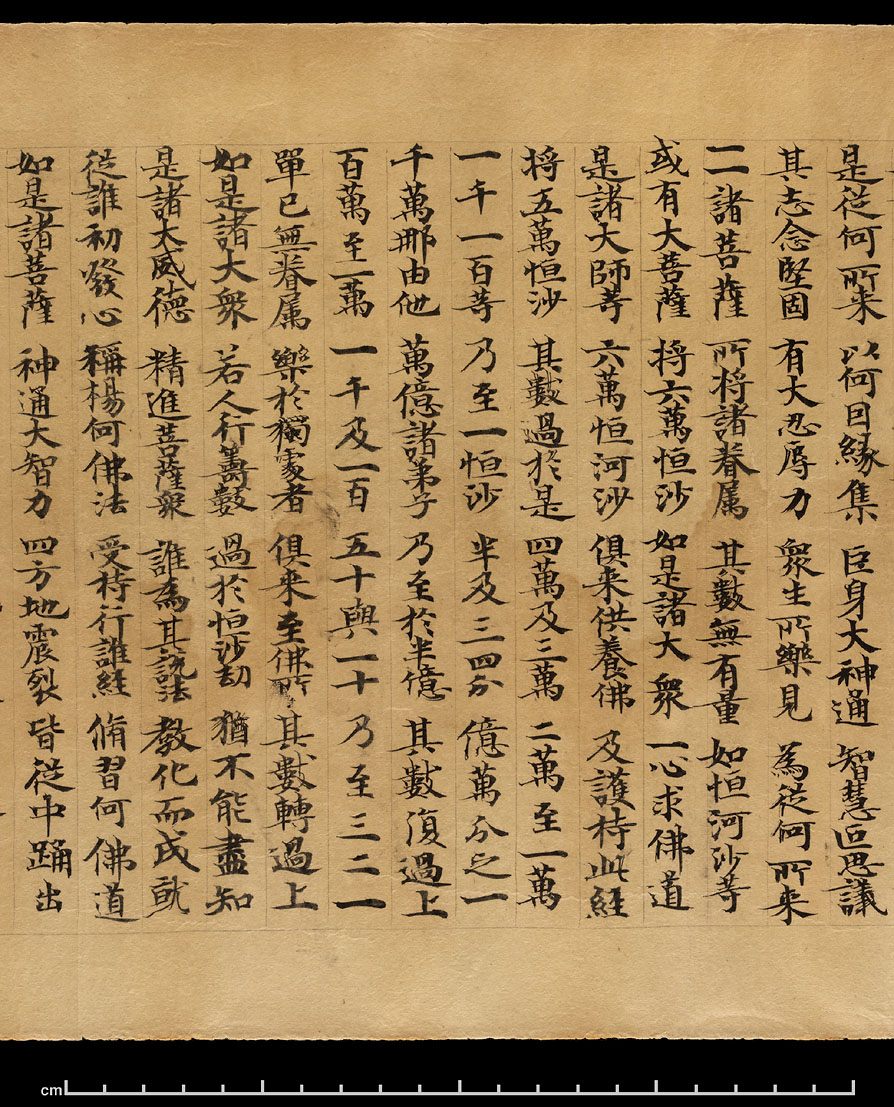 是從何所来 以何因緣集 叵身大神通 智慧叵思議
其志念堅固 有大忍辱力 衆生所樂見 為從何所来
一一諸菩薩 所將諸眷属 其數無有量 如恒河沙等
或有大菩薩 將六萬恒沙 如是諸大衆 一心求佛道
是諸大師等 六萬恒河沙 俱来供養佛 及護持此經
將五萬恒沙 其數過於是 四萬及三萬 二萬至一萬
一千一百等 乃至一恒沙 半及三四分 億萬分之一
千萬那由他 萬億諸弟子 乃至於半億 其數復過上
百萬至一萬 一千及一百 五十與一十 乃至三二一
單已無眷属 樂於獨處者 俱来至佛所 其數轉過上
如是諸大衆 若人行籌數 過於恒沙劫 猶不能盡知
是諸大威德 精進菩薩衆 誰為其說法 教化而成就
從誰初發心 稱楊何佛法 受持行誰經 脩習何佛道
如是諸菩薩 神通大智力 四方地震裂 皆從中踊出